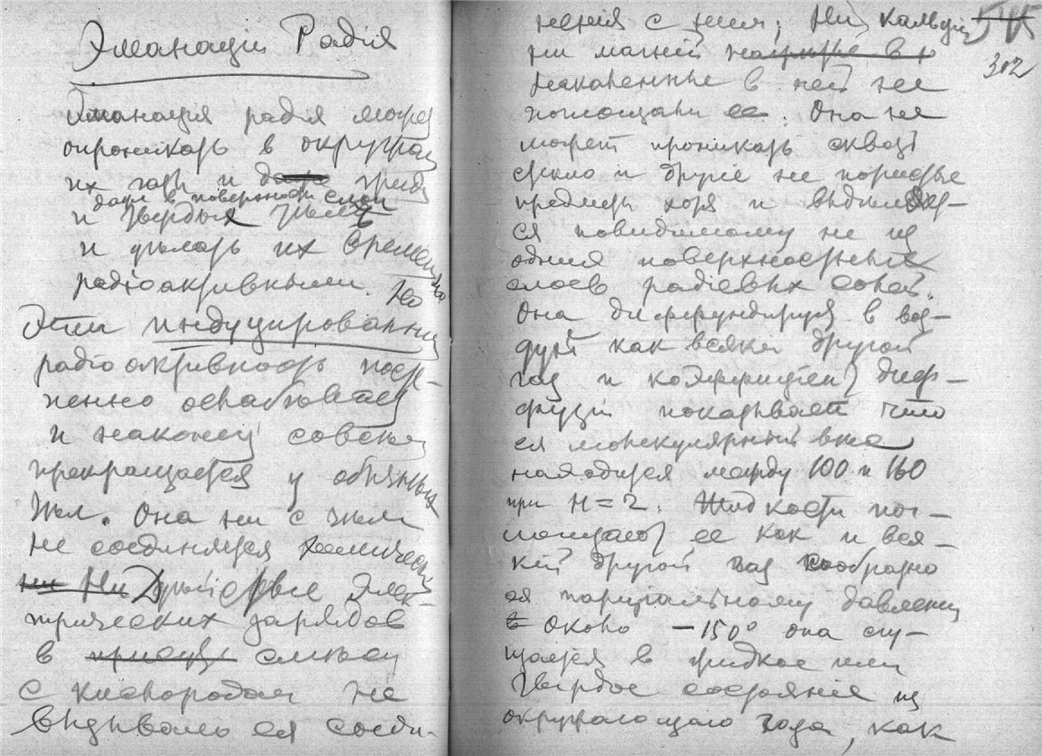 Эманація Радія
Эманація радія может
проникать в окружаю
их газы и даже
даже в поверхности слои
и твердых тыл
и дылать их временно
радіоактивными. Но
Эти индуцированная
радіоактивность посте-
пенно ослабывает
и наконец совсем
прекращается у обычных
тыл. Она ни с чым
не соединяется химически
ни Ни Дыйствіе элек-
трических зарядов
в смыси
с кислородом не
вызывало ея соеди-
ненія с ним; Ни кальцій
ни магній
накаленные в ней не
поглощали ее. Она не
может проникать сквозь
стекло и другіе не пористые
предметы хотя и выдыляет-
ся повидимому не из
одних поверхностных
слоев радіевых солей.
Она диффундируя в воз-
духы как всякій другой
газ и коэффиціент диф-
фузіи показывает что
ея молекулярный выс
находится между 100 и 160
при H=2. Жидкости пог-
лощают ее как и вся-
кій другой газ сообразно
ея парціальному давленію
Около -150° она сгу-
щается в жидкое или
твердое состояніе из
окружающаго газа, как
302